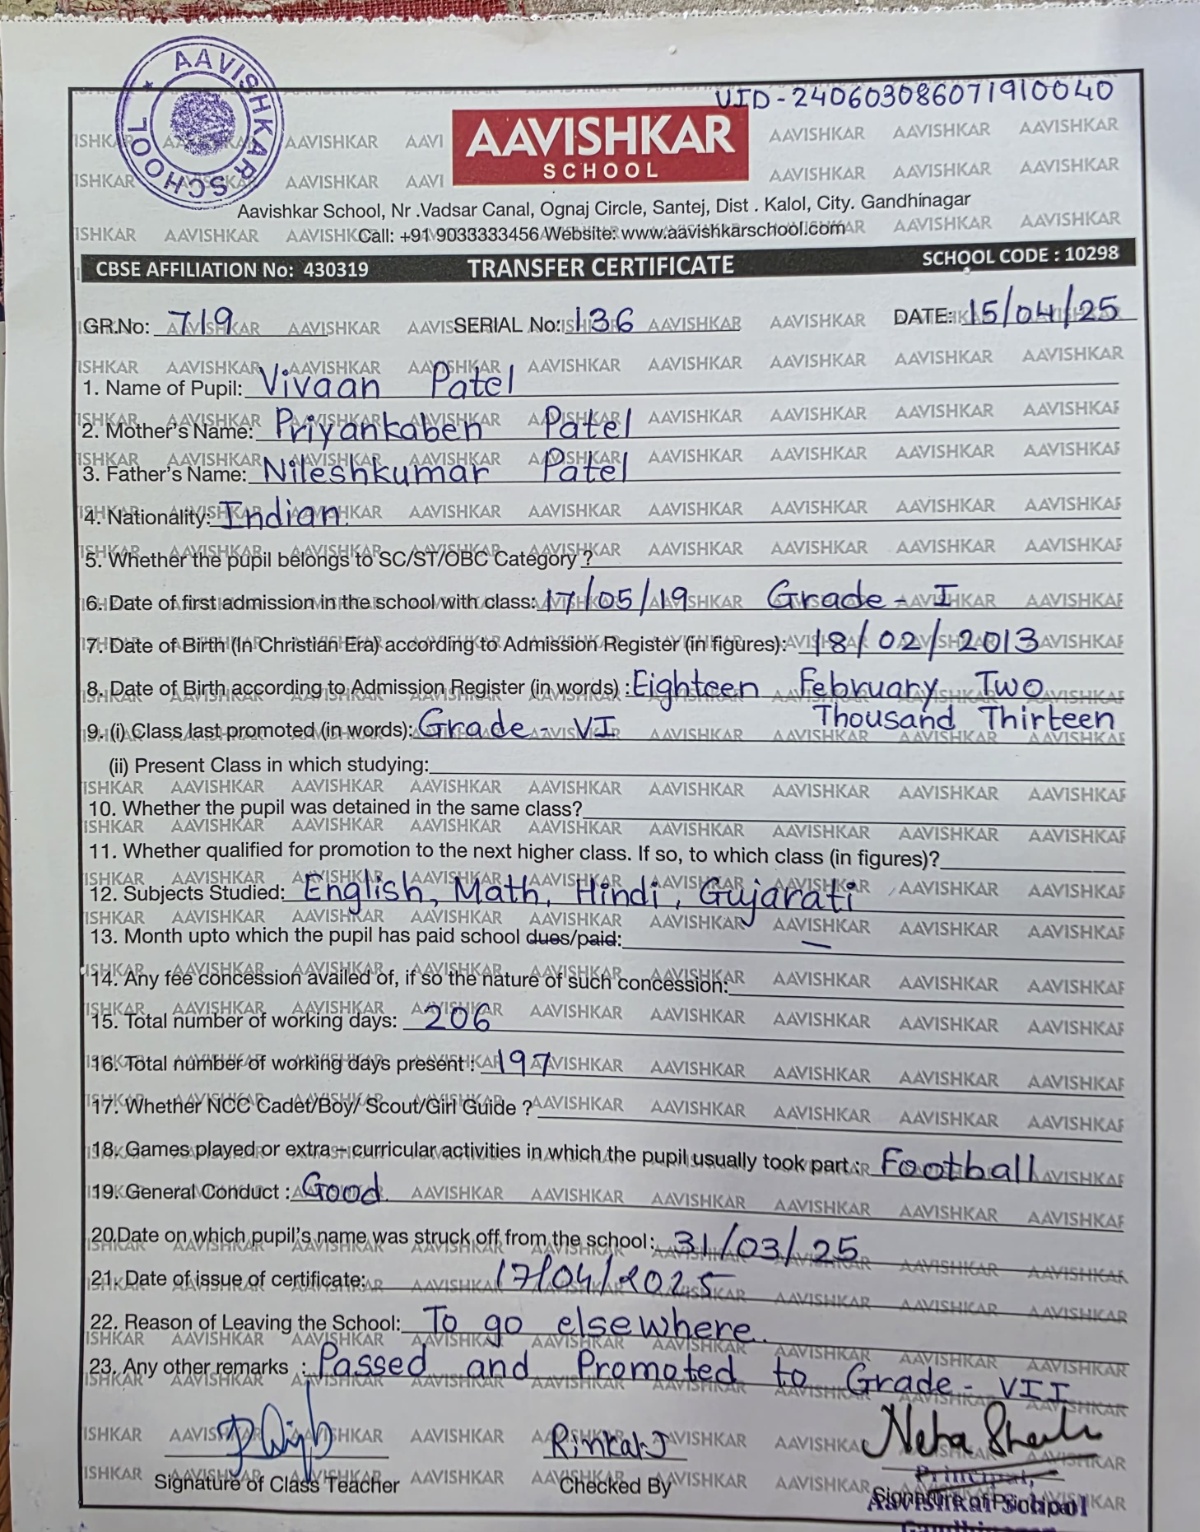 AAVISHKAR SCHOOL
UID-240603086071910040
AAVISHKAR
SCHOOL
Aavishkar School, Nr .Vadsar Canal, Ognaj Circle, Santej, Dist . Kalol, City. Gandhinagar
Call: +91 9033333456 Website: www.aavishkarschool.com
CBSE AFFILIATION No: 430319 TRANSFER CERTIFICATE SCHOOL CODE : 10298
GR.No: 719 SERIAL No: 136 DATE: 15/04/25
1. Name of Pupil: Vivaan Patel
2. Mother's Name: Priyankaben Patel
3. Father's Name: Nileshkumar Patel
4. Nationality: Indian
5. Whether the pupil belongs to SC/ST/OBC Category ?
6. Date of first admission in the school with class: 17/05/19 Grade - I
7. Date of Birth (In Christian Era) according to Admission Register (in figures): 18/02/2013
8. Date of Birth according to Admission Register (in words) : Eighteen February Two
Thousand Thirteen
9. (i) Class last promoted (in words): Grade - VI
(ii) Present Class in which studying:
10. Whether the pupil was detained in the same class?
11. Whether qualified for promotion to the next higher class. If so, to which class (in figures)?
12. Subjects Studied: English, Math, Hindi, Gujarati
13. Month upto which the pupil has paid school dues/paid: —
14. Any fee concession availed of, if so the nature of such concession:
15. Total number of working days: 206
16. Total number of working days present : 197
17. Whether NCC Cadet/Boy/ Scout/Girl Guide ?
18. Games played or extra – curricular activities in which the pupil usually took part : Football
19. General Conduct : Good
20.Date on which pupil's name was struck off from the school: 31/03/25
21. Date of issue of certificate: 17/04/2025
22. Reason of Leaving the School: To go elsewhere.
23. Any other remarks : Passed and Promoted to Grade - VII
Rinkal J Neha
Signature of Class Teacher Checked By Signature of Principal
Principal,
Aavishkar School